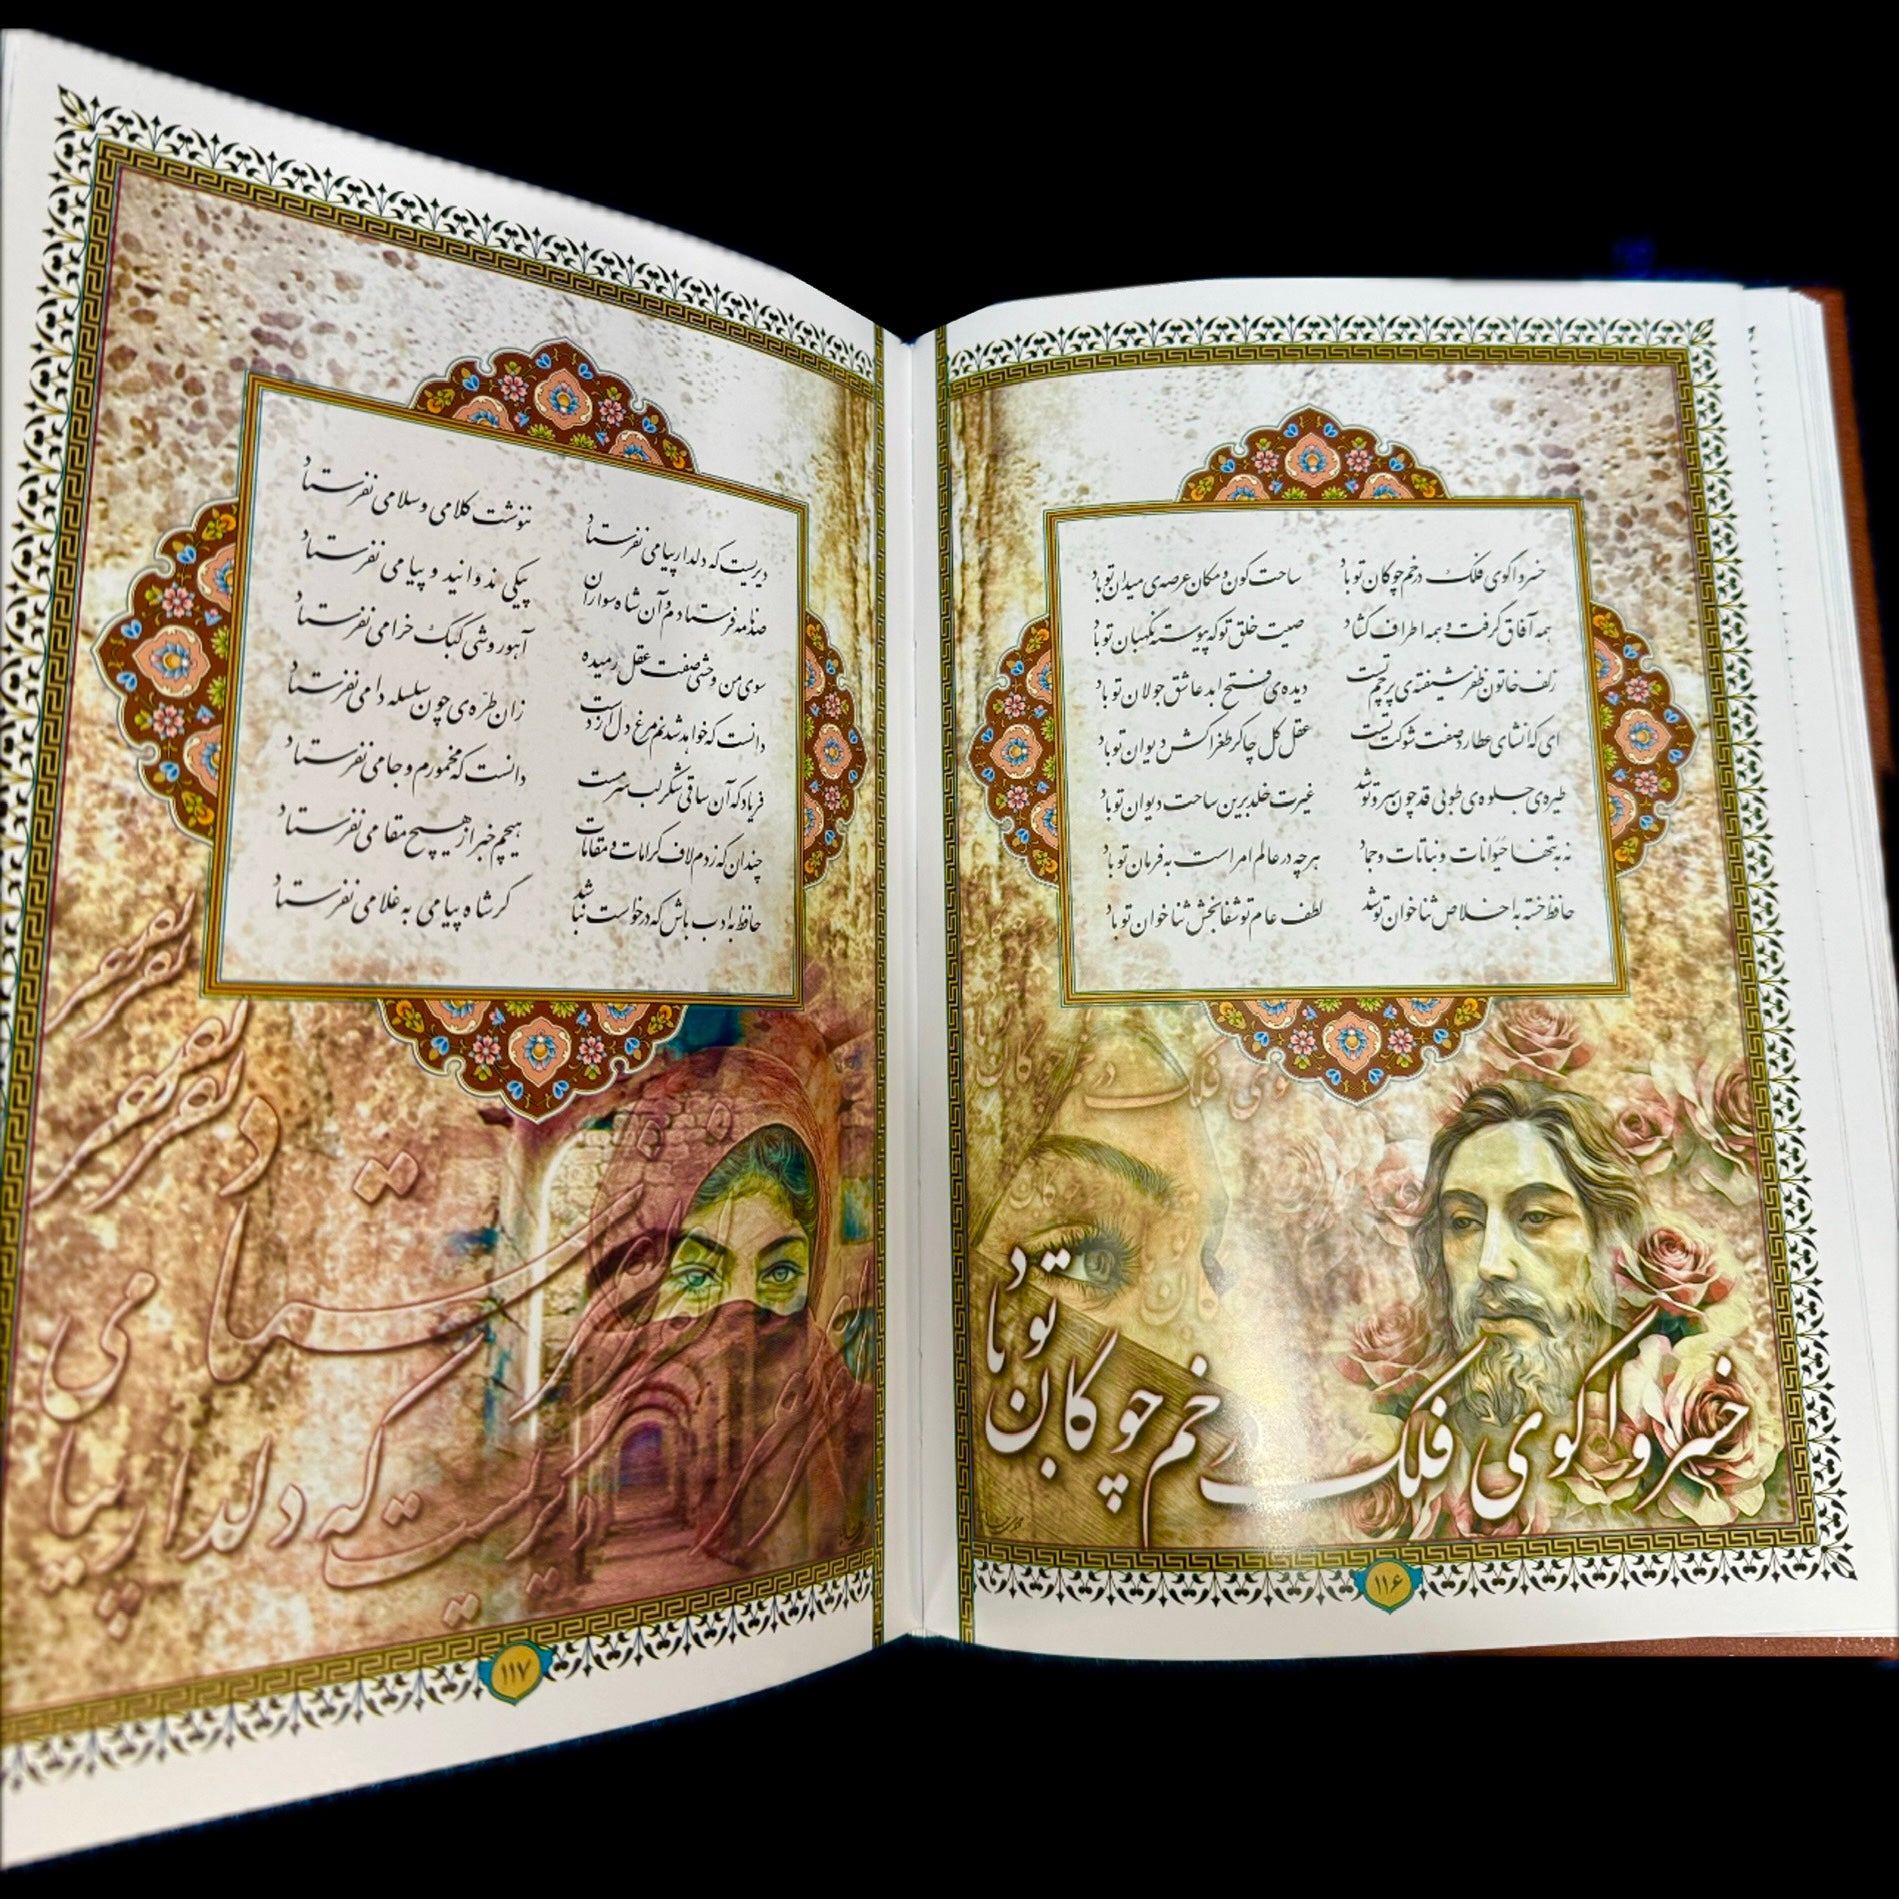 خسروا گوی فلک در خم چوگان تو باد
ساحت کون و مکان عرصه‌ی میدان تو باد
همه آفاق گرفت و همه اطراف گشاد
صیت خلق تو که پیوسته نگهبان تو باد
زلف خاتون ظفر شیفته‌ی پرچم تست
دیده‌ی فتح ابد عاشق جولان تو باد
ای که انشای عطارد صفت شوکت تست
عقل کل چاکر طغراکش دیوان تو باد
طیره‌ی جلوه‌ی طوبی قد چون سرو تو شد
غیرت خلد برین ساحت دیوان تو باد
نه به تنها حیوانات و نباتات و جماد
هرچه در عالم امر است به فرمان تو باد
حافظ خسته به اخلاص ثنا خوان تو شد
لطف عام تو شفا بخش ثنا خوان تو باد
خسروا گوی فلک در خم چوگان تو باد
۱۱۶
دیریست که دلدار پیامی نفرستاد
ننوشت کلامی و سلامی نفرستاد
صد نامه فرستادم و آن شاه سواران
پیکی ندوانید و پیامی نفرستاد
سوی من وحشی صفت عقل رمیده
آهو روشی کبک خرامی نفرستاد
دانست که خواهد شدنم مرغ دل از دست
زان طرّه‌ی چون سلسله دامی نفرستاد
فریاد که آن ساقی شکر لب سرمست
دانست که مخمورم و جامی نفرستاد
چندان که زدم لاف کرامات و مقامات
هیچم خبر از هیچ مقامی نفرستاد
حافظ به ادب باش که درخواست نباشد
گر شاه پیامی به غلامی نفرستاد
دیریست که دلدار پیامی نفرستاد
۱۱۷